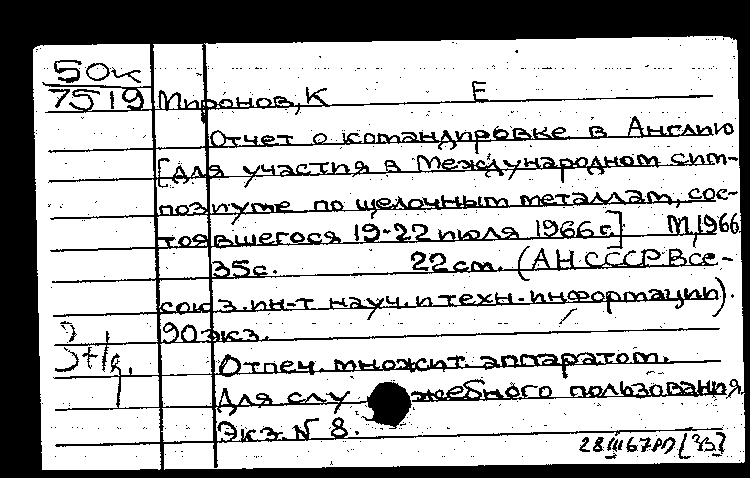 50к
7519 Миронов, К Е
Отчет о командировке в Англию
[для участия в Международном сим-
позиуме по щелочным металлам, сос-
тоявшегося 19-22 июля 1966 г.] М, 1966
35с. 22 см. (АН СССР Все-
союз. ин-т науч. и техн. информации).
90 экз.
Отпеч. множит. аппаратом.
Для служебного пользования
Экз. N 8.
28 III 67